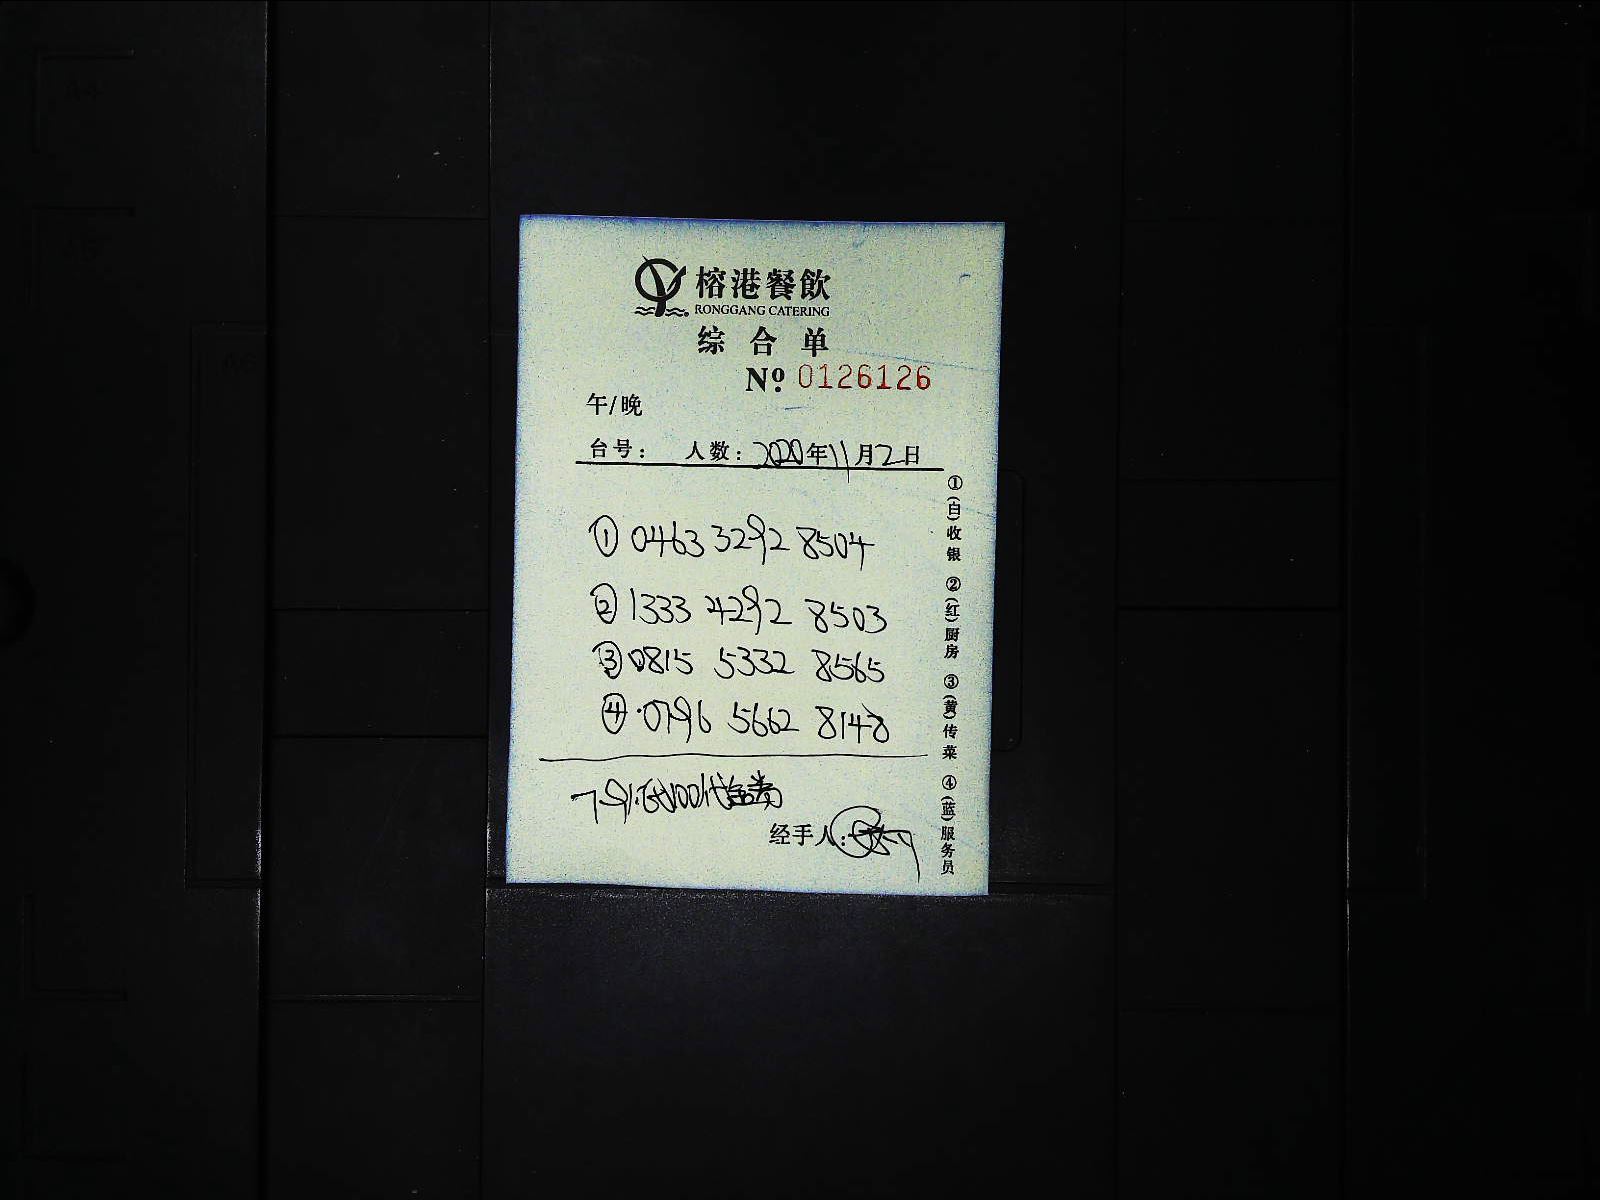 榕港餐飲
RONGGANG CATERING
综合单
Nº 0126126
午/晚
台号: 人数: 2020年11月2日
① 0463 3292 8504
② 1333 4292 8503
③ 0815 5332 8565
④ 0796 5662 8148
经手人:
①(白)收银 ②(红)厨房 ③(黄)传菜 ④(蓝)服务员